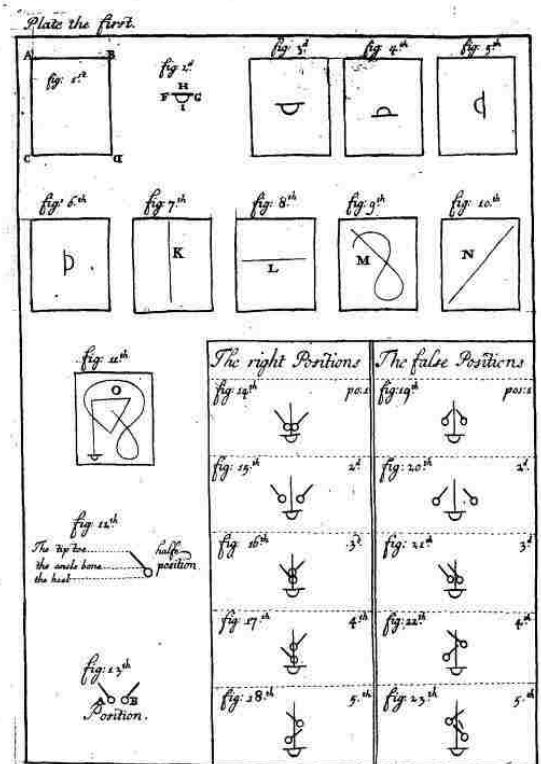 Plate the first.
A B
fig: 1.st
C D
fig 2.d
H
F G
I
fig 3.d
fig 4.th
fig 5.th
fig: 6.th
fig 7.th
K
fig: 8.th
L
fig: 9.th
M
fig: 10.th
N
fig: 11.th
O
fig 12.th
The tip toe
the ancle bone
the heel
halfe
position
fig: 13.th
A B
Position.
The right Positions
fig: 14.th pos:1
fig: 15.th 2.d
fig 16.th 3.d
fig: 17.th 4.th
fig: 18.th 5.th
The false Positions
fig: 19.th pos:1
fig: 20.th 2.d
fig: 21.th 3.d
fig: 22.th 4.th
fig: 23.th 5.th